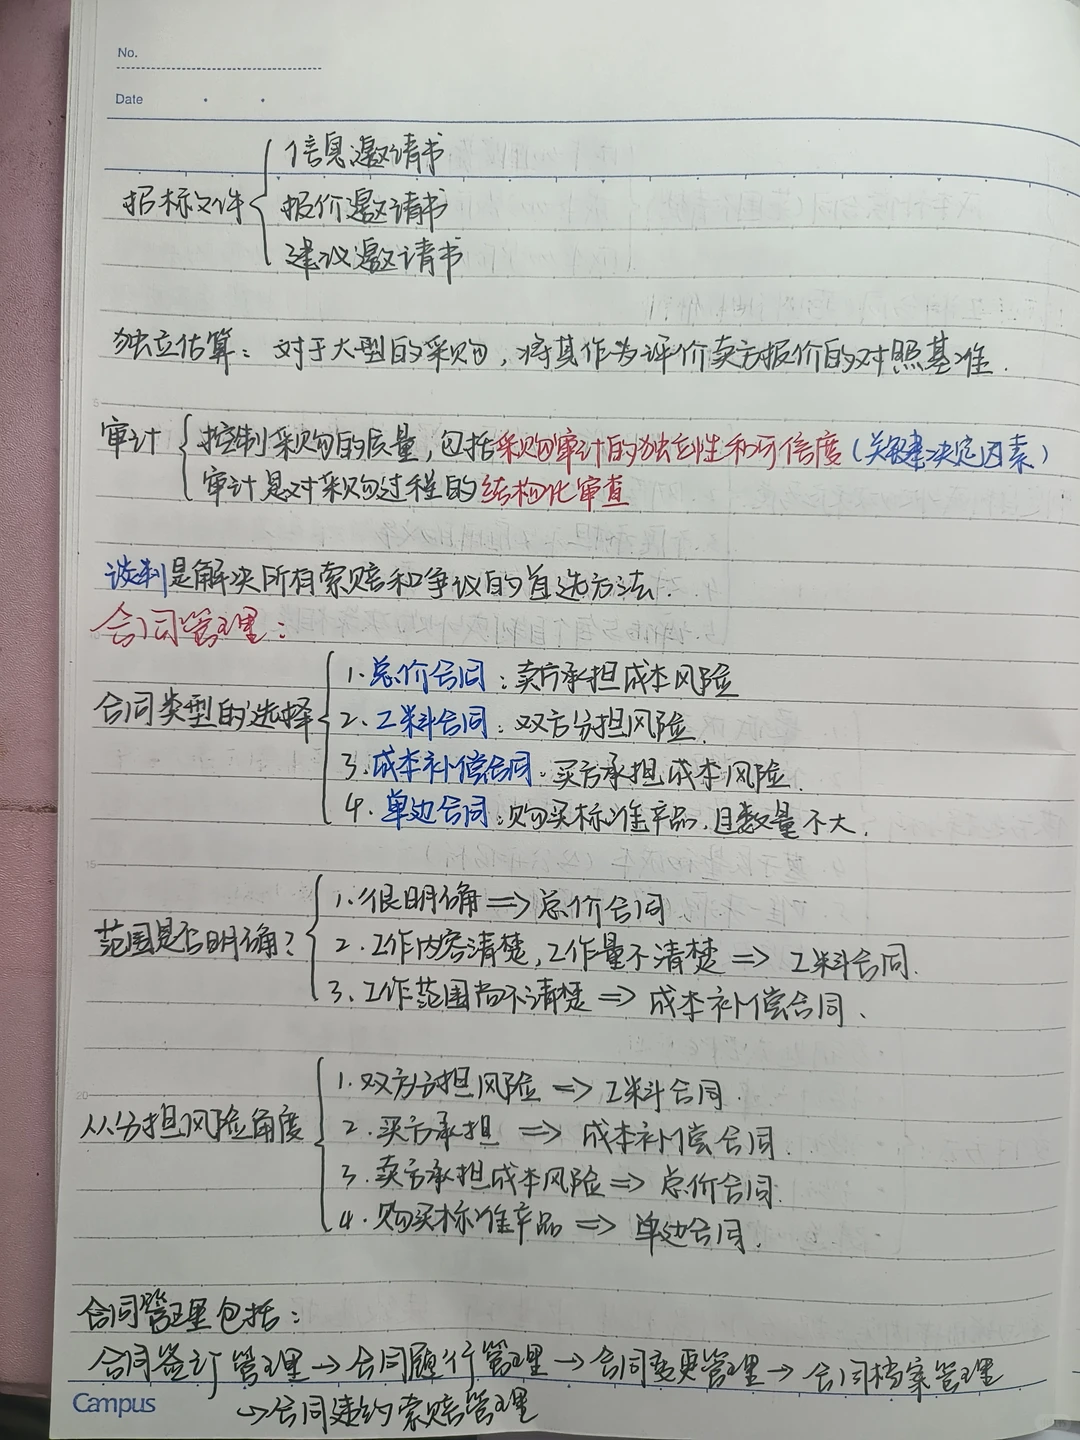 No.
Date
招标文件
信息邀请书
报价邀请书
建议邀请书
独立估算：对于大型的采购，将其作为评价卖方报价的对照基准．
审计
控制采购的质量，包括采购审计的独立性和可信度（关键决定因素）
审计是对采购过程的结构化审查
谈判是解决所有索赔和争议的首选方法．
合同管理：
合同类型的选择
1.总价合同：卖方承担成本风险
2.工料合同：双方分担风险．
3.成本补偿合同：买方承担成本风险．
4.单边合同：购买标准产品，且数量不大．
范围是否明确？
1.很明确⇒总价合同
2.工作内容清楚，工作量不清楚⇒工料合同．
3.工作范围尚不清楚⇒成本补偿合同．
从分担风险角度
1.双方分担风险⇒工料合同．
2.买方承担⇒成本补偿合同．
3.卖方承担成本风险⇒总价合同．
4.购买标准产品⇒单边合同．
合同管理包括：
合同签订管理→合同履行管理→合同变更管理→合同档案管理
→合同违约索赔管理
Campus